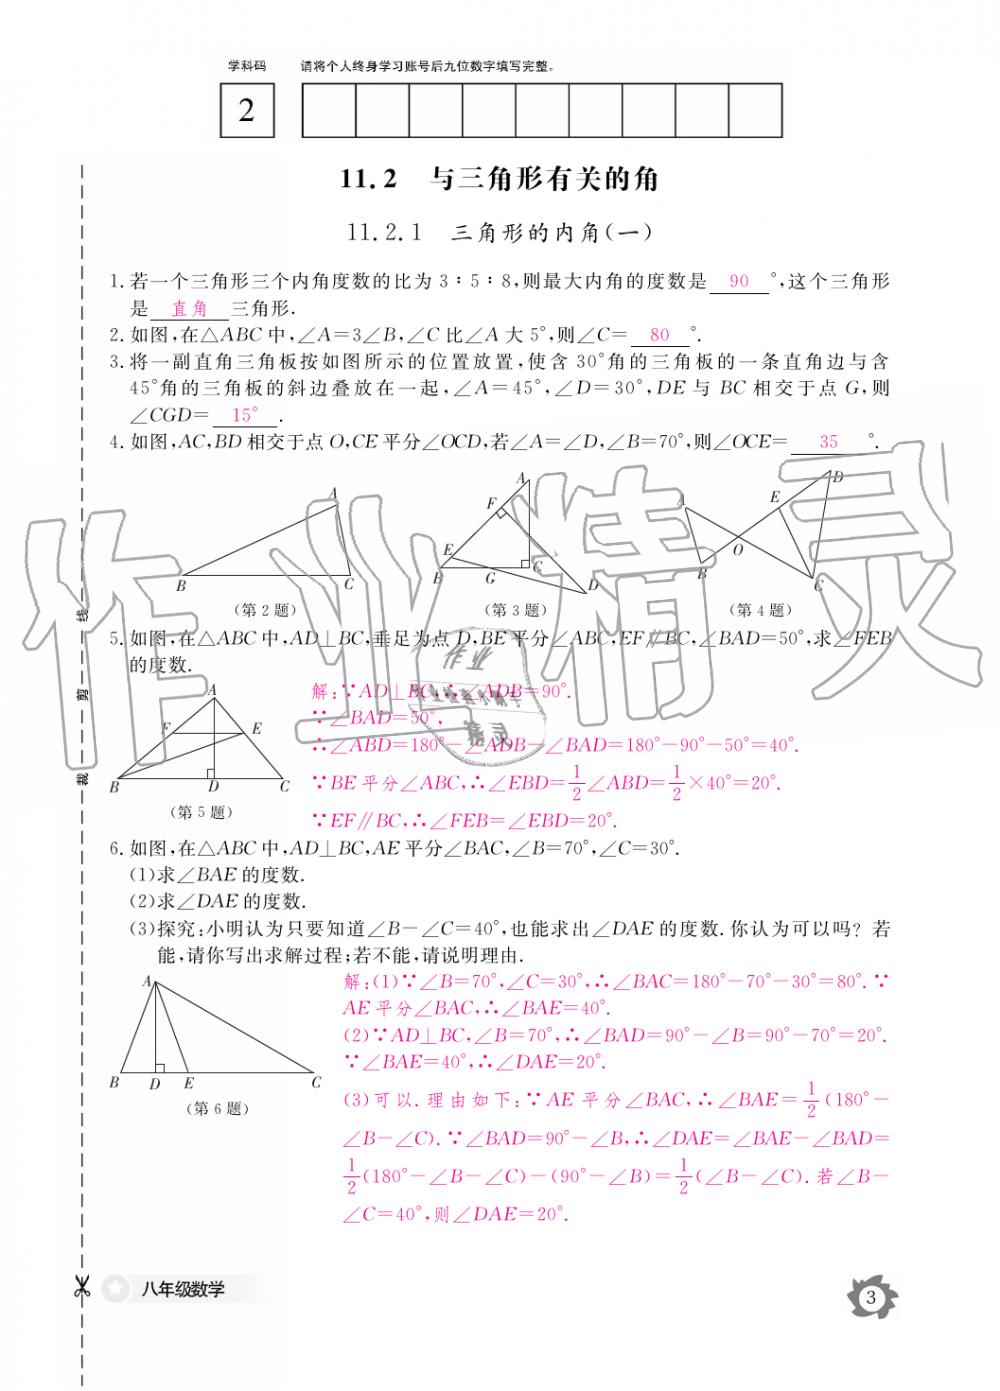 学科码 请将个人终身学习账号后九位数字填写完整。
2
11.2 与三角形有关的角
11.2.1 三角形的内角(一)
1.若一个三角形三个内角度数的比为 3∶5∶8,则最大内角的度数是 90 °,这个三角形
是 直角 三角形.
2.如图,在△ABC 中,∠A=3∠B,∠C 比∠A 大 5°,则∠C= 80 °.
3.将一副直角三角板按如图所示的位置放置,使含 30°角的三角板的一条直角边与含
45°角的三角板的斜边叠放在一起,∠A=45°,∠D=30°,DE 与 BC 相交于点 G,则
∠CGD= 15° .
4.如图,AC,BD 相交于点 O,CE 平分∠OCD,若∠A=∠D,∠B=70°,则∠OCE= 35 °.
A
B
C
(第 2 题)
A
F
E
B
G
C
D
(第 3 题)
A
E
D
O
B
C
(第 4 题)
5.如图,在△ABC 中,AD⊥BC,垂足为点 D,BE 平分∠ABC,EF∥BC,∠BAD=50°,求∠FEB
的度数.
A
F
E
B
D
C
(第 5 题)
解:∵AD⊥BC,∴∠ADB=90°.
∵∠BAD=50°,
∴∠ABD=180°-∠ADB-∠BAD=180°-90°-50°=40°.
∵BE 平分∠ABC,∴∠EBD=1/2∠ABD=1/2×40°=20°.
∵EF∥BC,∴∠FEB=∠EBD=20°.
6.如图,在△ABC 中,AD⊥BC,AE 平分∠BAC,∠B=70°,∠C=30°.
(1)求∠BAE 的度数.
(2)求∠DAE 的度数.
(3)探究:小明认为只要知道∠B-∠C=40°,也能求出∠DAE 的度数.你认为可以吗?若
能,请你写出求解过程;若不能,请说明理由.
A
B
D
E
C
(第 6 题)
解:(1)∵∠B=70°,∠C=30°,∴∠BAC=180°-70°-30°=80°.∵
AE 平分∠BAC,∴∠BAE=40°.
(2)∵AD⊥BC,∠B=70°,∴∠BAD=90°-∠B=90°-70°=20°.
∵∠BAE=40°,∴∠DAE=20°.
(3)可以.理由如下:∵AE 平分∠BAC,∴∠BAE=1/2(180°-
∠B-∠C).∵∠BAD=90°-∠B,∴∠DAE=∠BAE-∠BAD=
1/2(180°-∠B-∠C)-(90°-∠B)=1/2(∠B-∠C).若∠B-
∠C=40°,则∠DAE=20°.
线
剪
裁
八年级数学
3
作业精灵